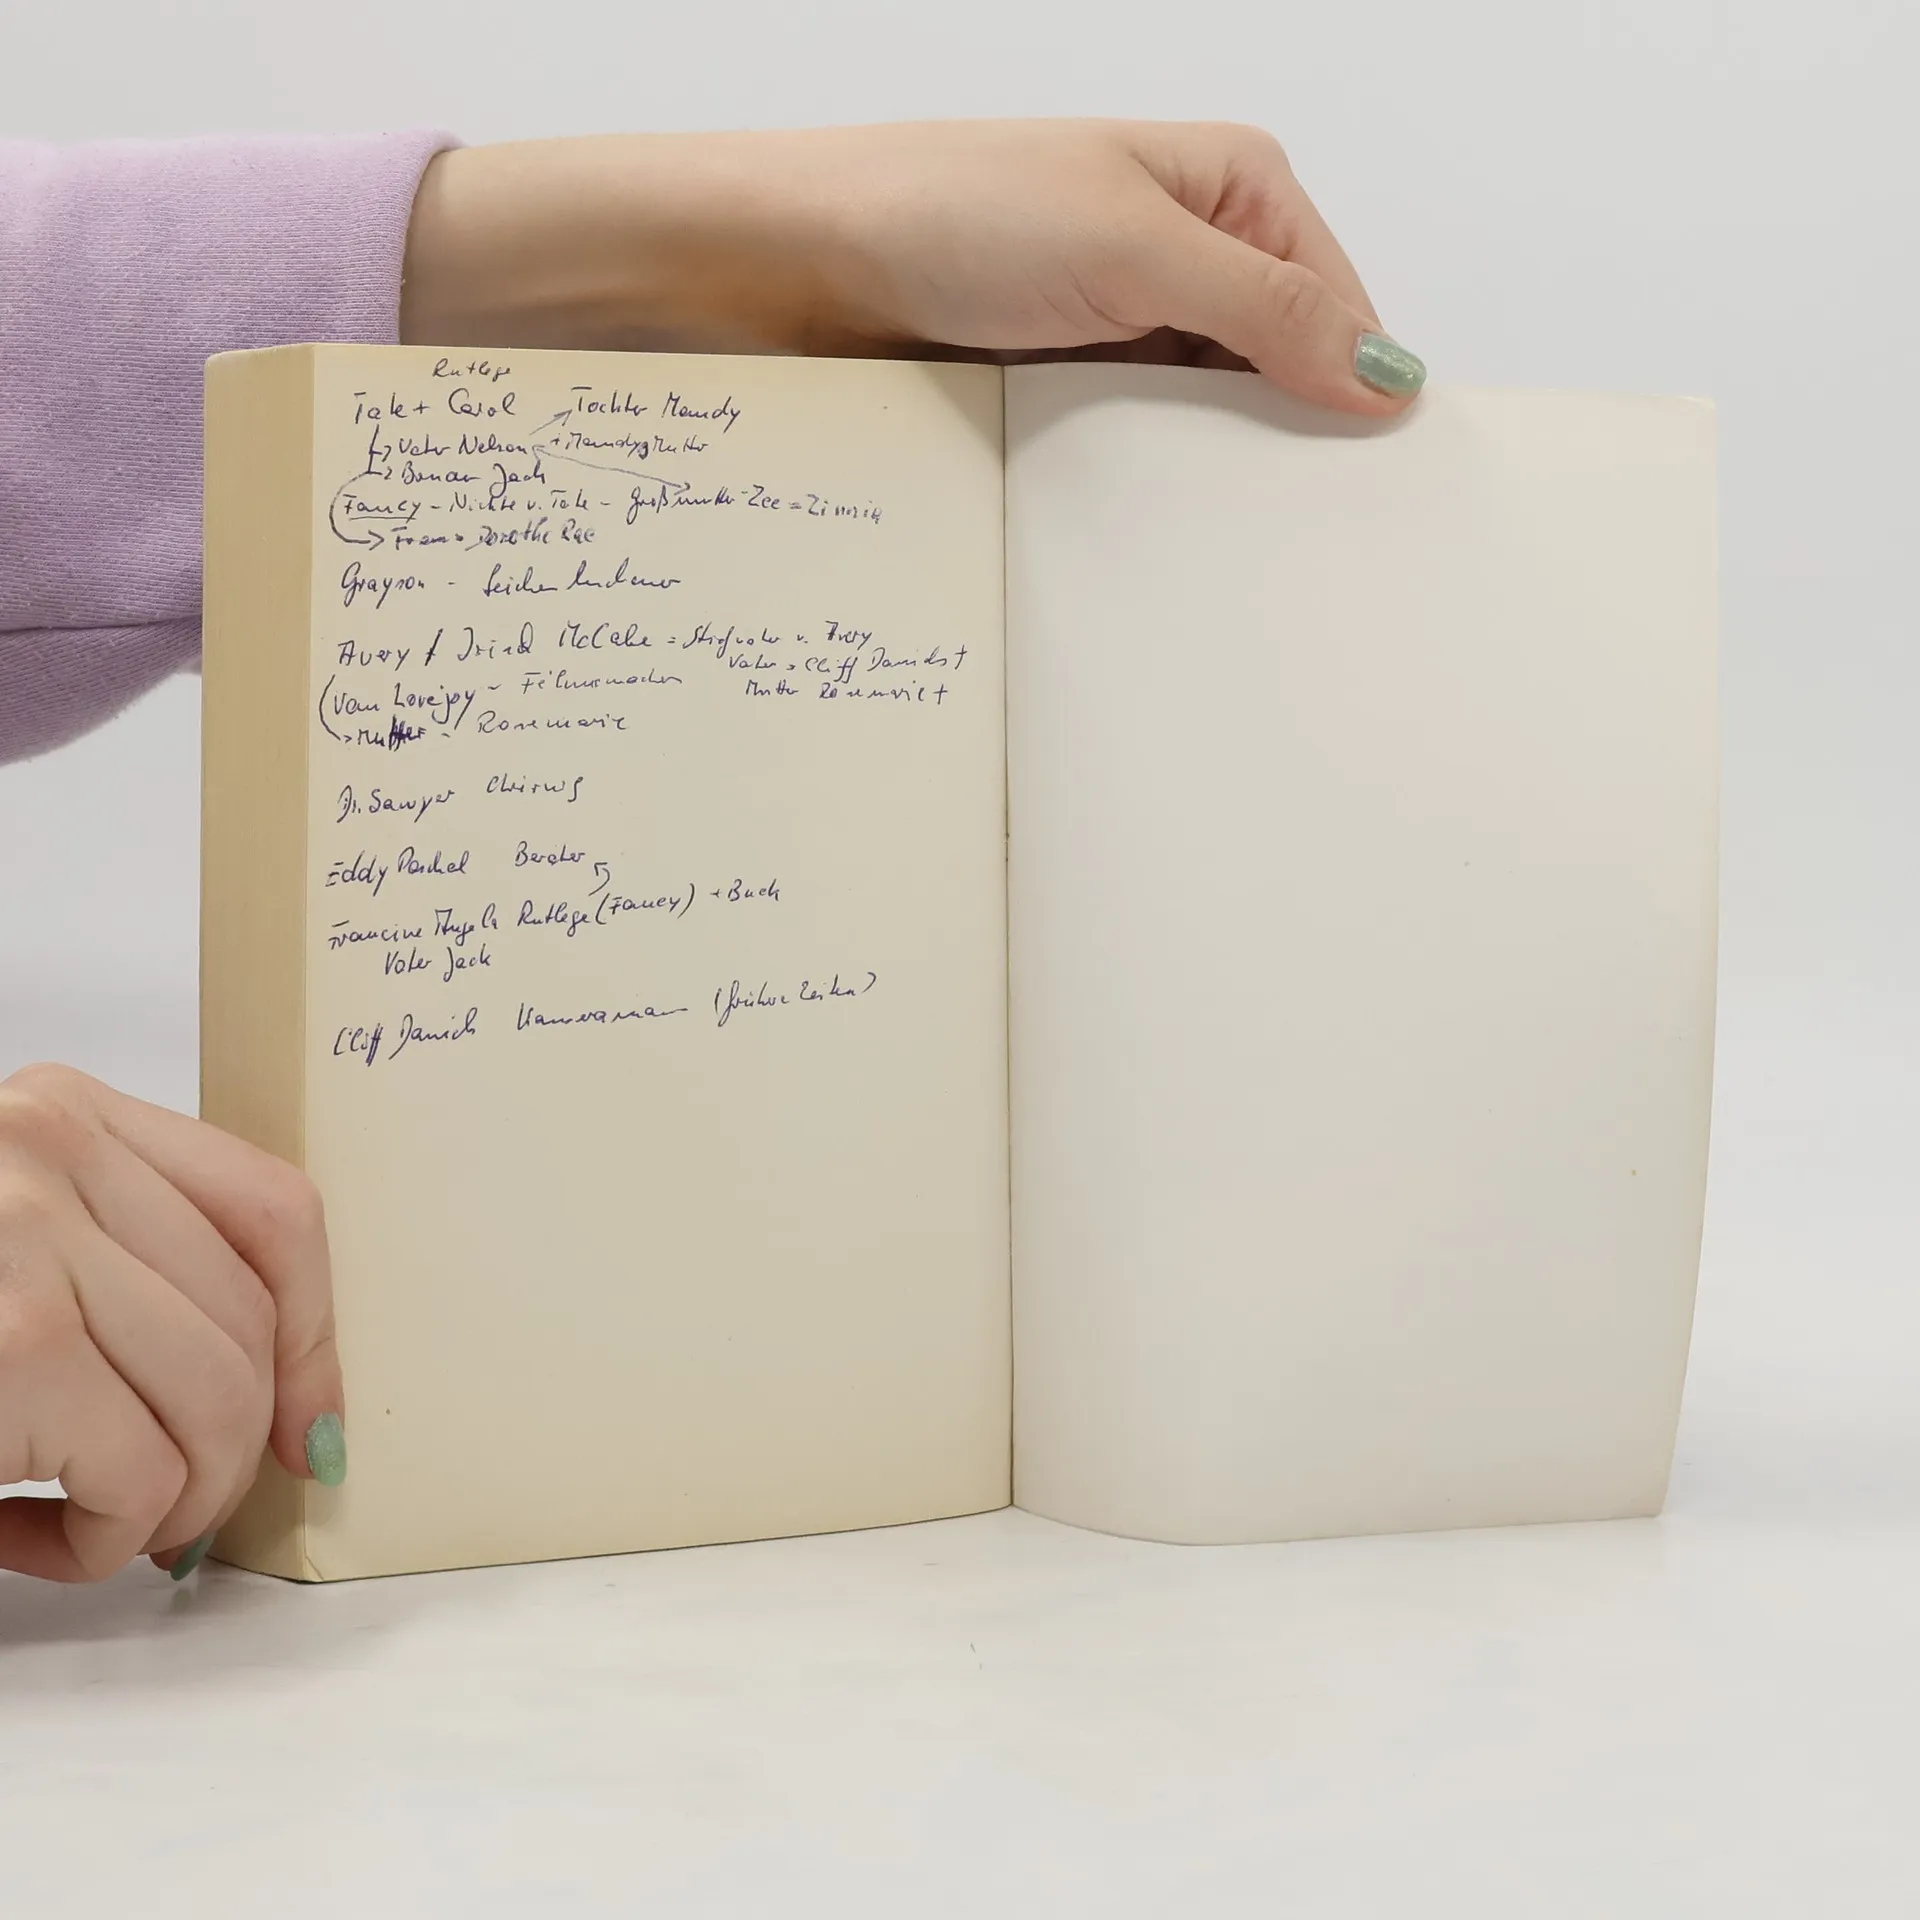 Rutlege
Tate + Carol Tochter Mandy
Vater Nelson + Mandys Mutter
Jack
Fancy - Nichte v. Tate - Großmutter - Zee =
Frau = Dorothe Rae
Grayson -
Avery / McCabe = Stiefvater v. Avery
Vater = Cliff Daniels †
Van Lovejoy -
Mutter Rosemarie †
Mutter - Rosemarie
Dr. Sawyer Chirurg
Eddy Paschal Berater
Francine Angela Rutlege (Fancy) + Buck
Vater Jack
Cliff Daniels Kameramann (frühere Zeiten)